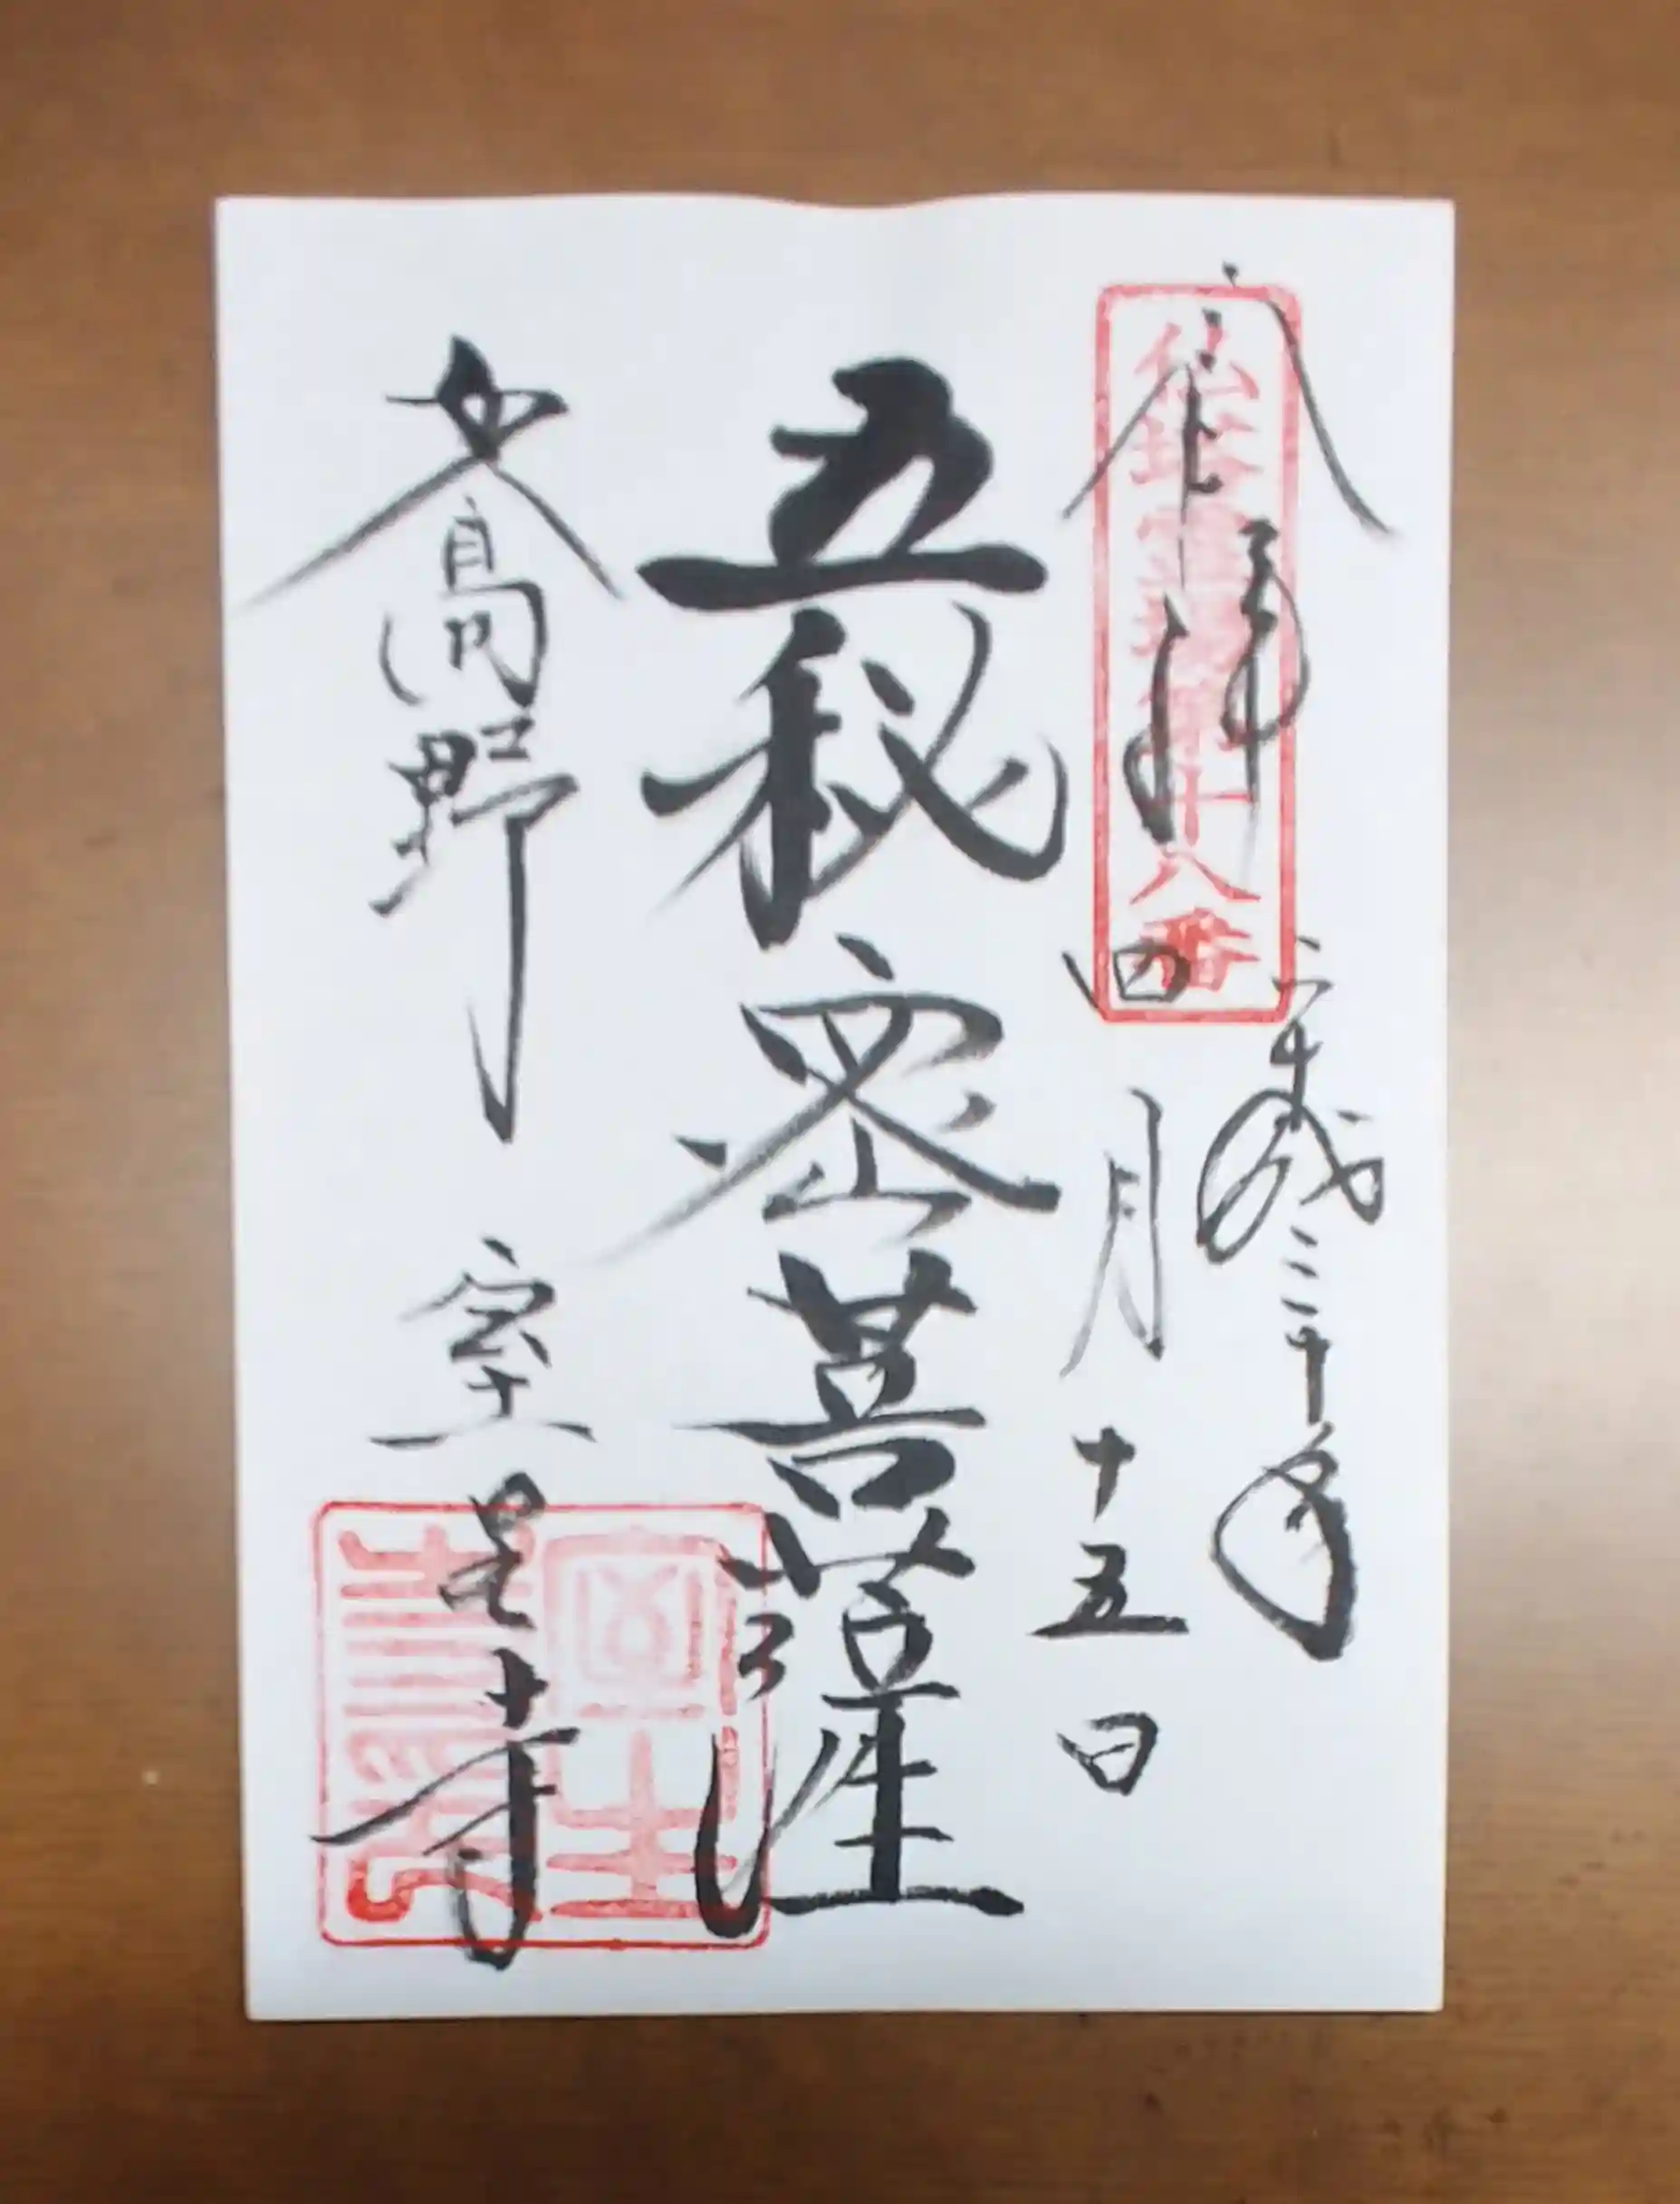 奉拝
平成三十年
四月十五日
仏塔霊場第十八番
五秘密菩薩
女高野
室生寺